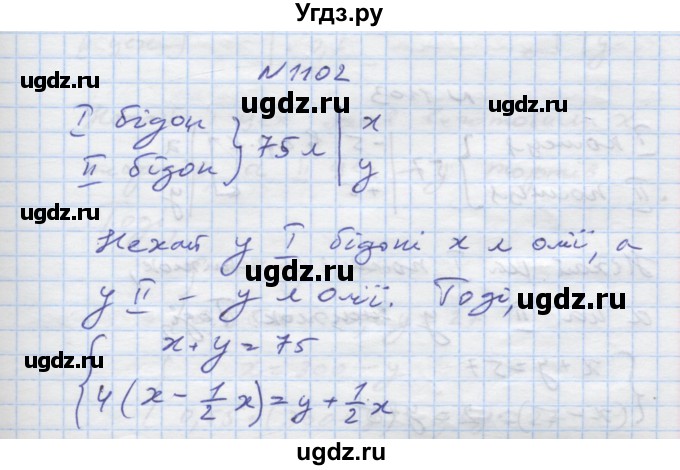 Угдз.ру
№1102
ugdz.ru
ugdz.ru
I бідон } 75 л | x
II бідон } | y
ugdz.ru
ugdz.ru
Нехай у I бідоні x л олії, а
у II – y л олії. Тоді,
ugdz.ru
ugdz.ru
{ x + y = 75
4(x - 1/2 x) = y + 1/2 x
ugdz.ru
ugdz.ru
Угдз.ру